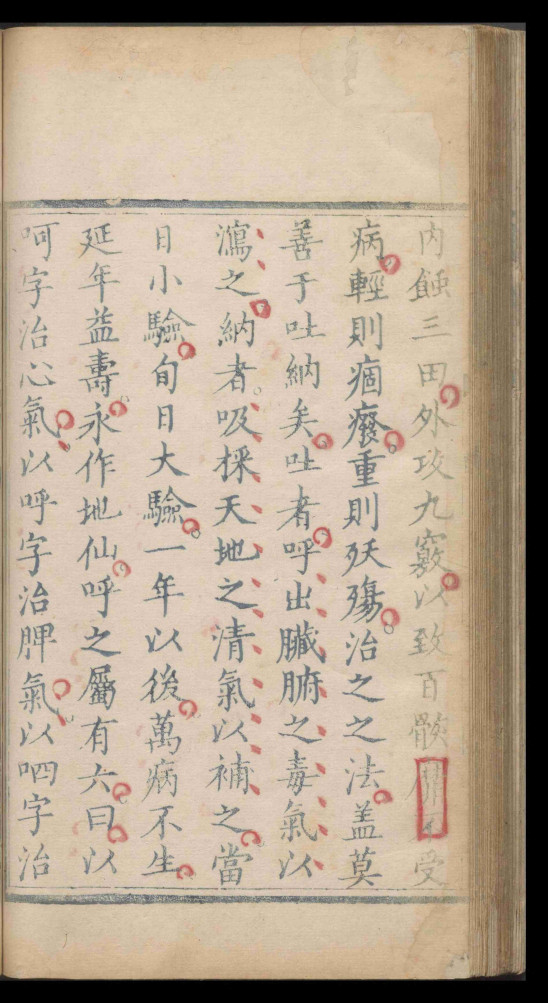 內蝕三田外攻九竅以致百骸受
病輕則痼癈重則殀殤治之之法盖莫
善于吐納矣吐者呼出臟腑之毒氣以
瀉之納者吸採天地之清氣以補之當
日小驗旬日大驗一年以後萬病不生
延年益壽永作地仙呼之屬有六曰以
呵字治心氣以呼字治脾氣以呬字治